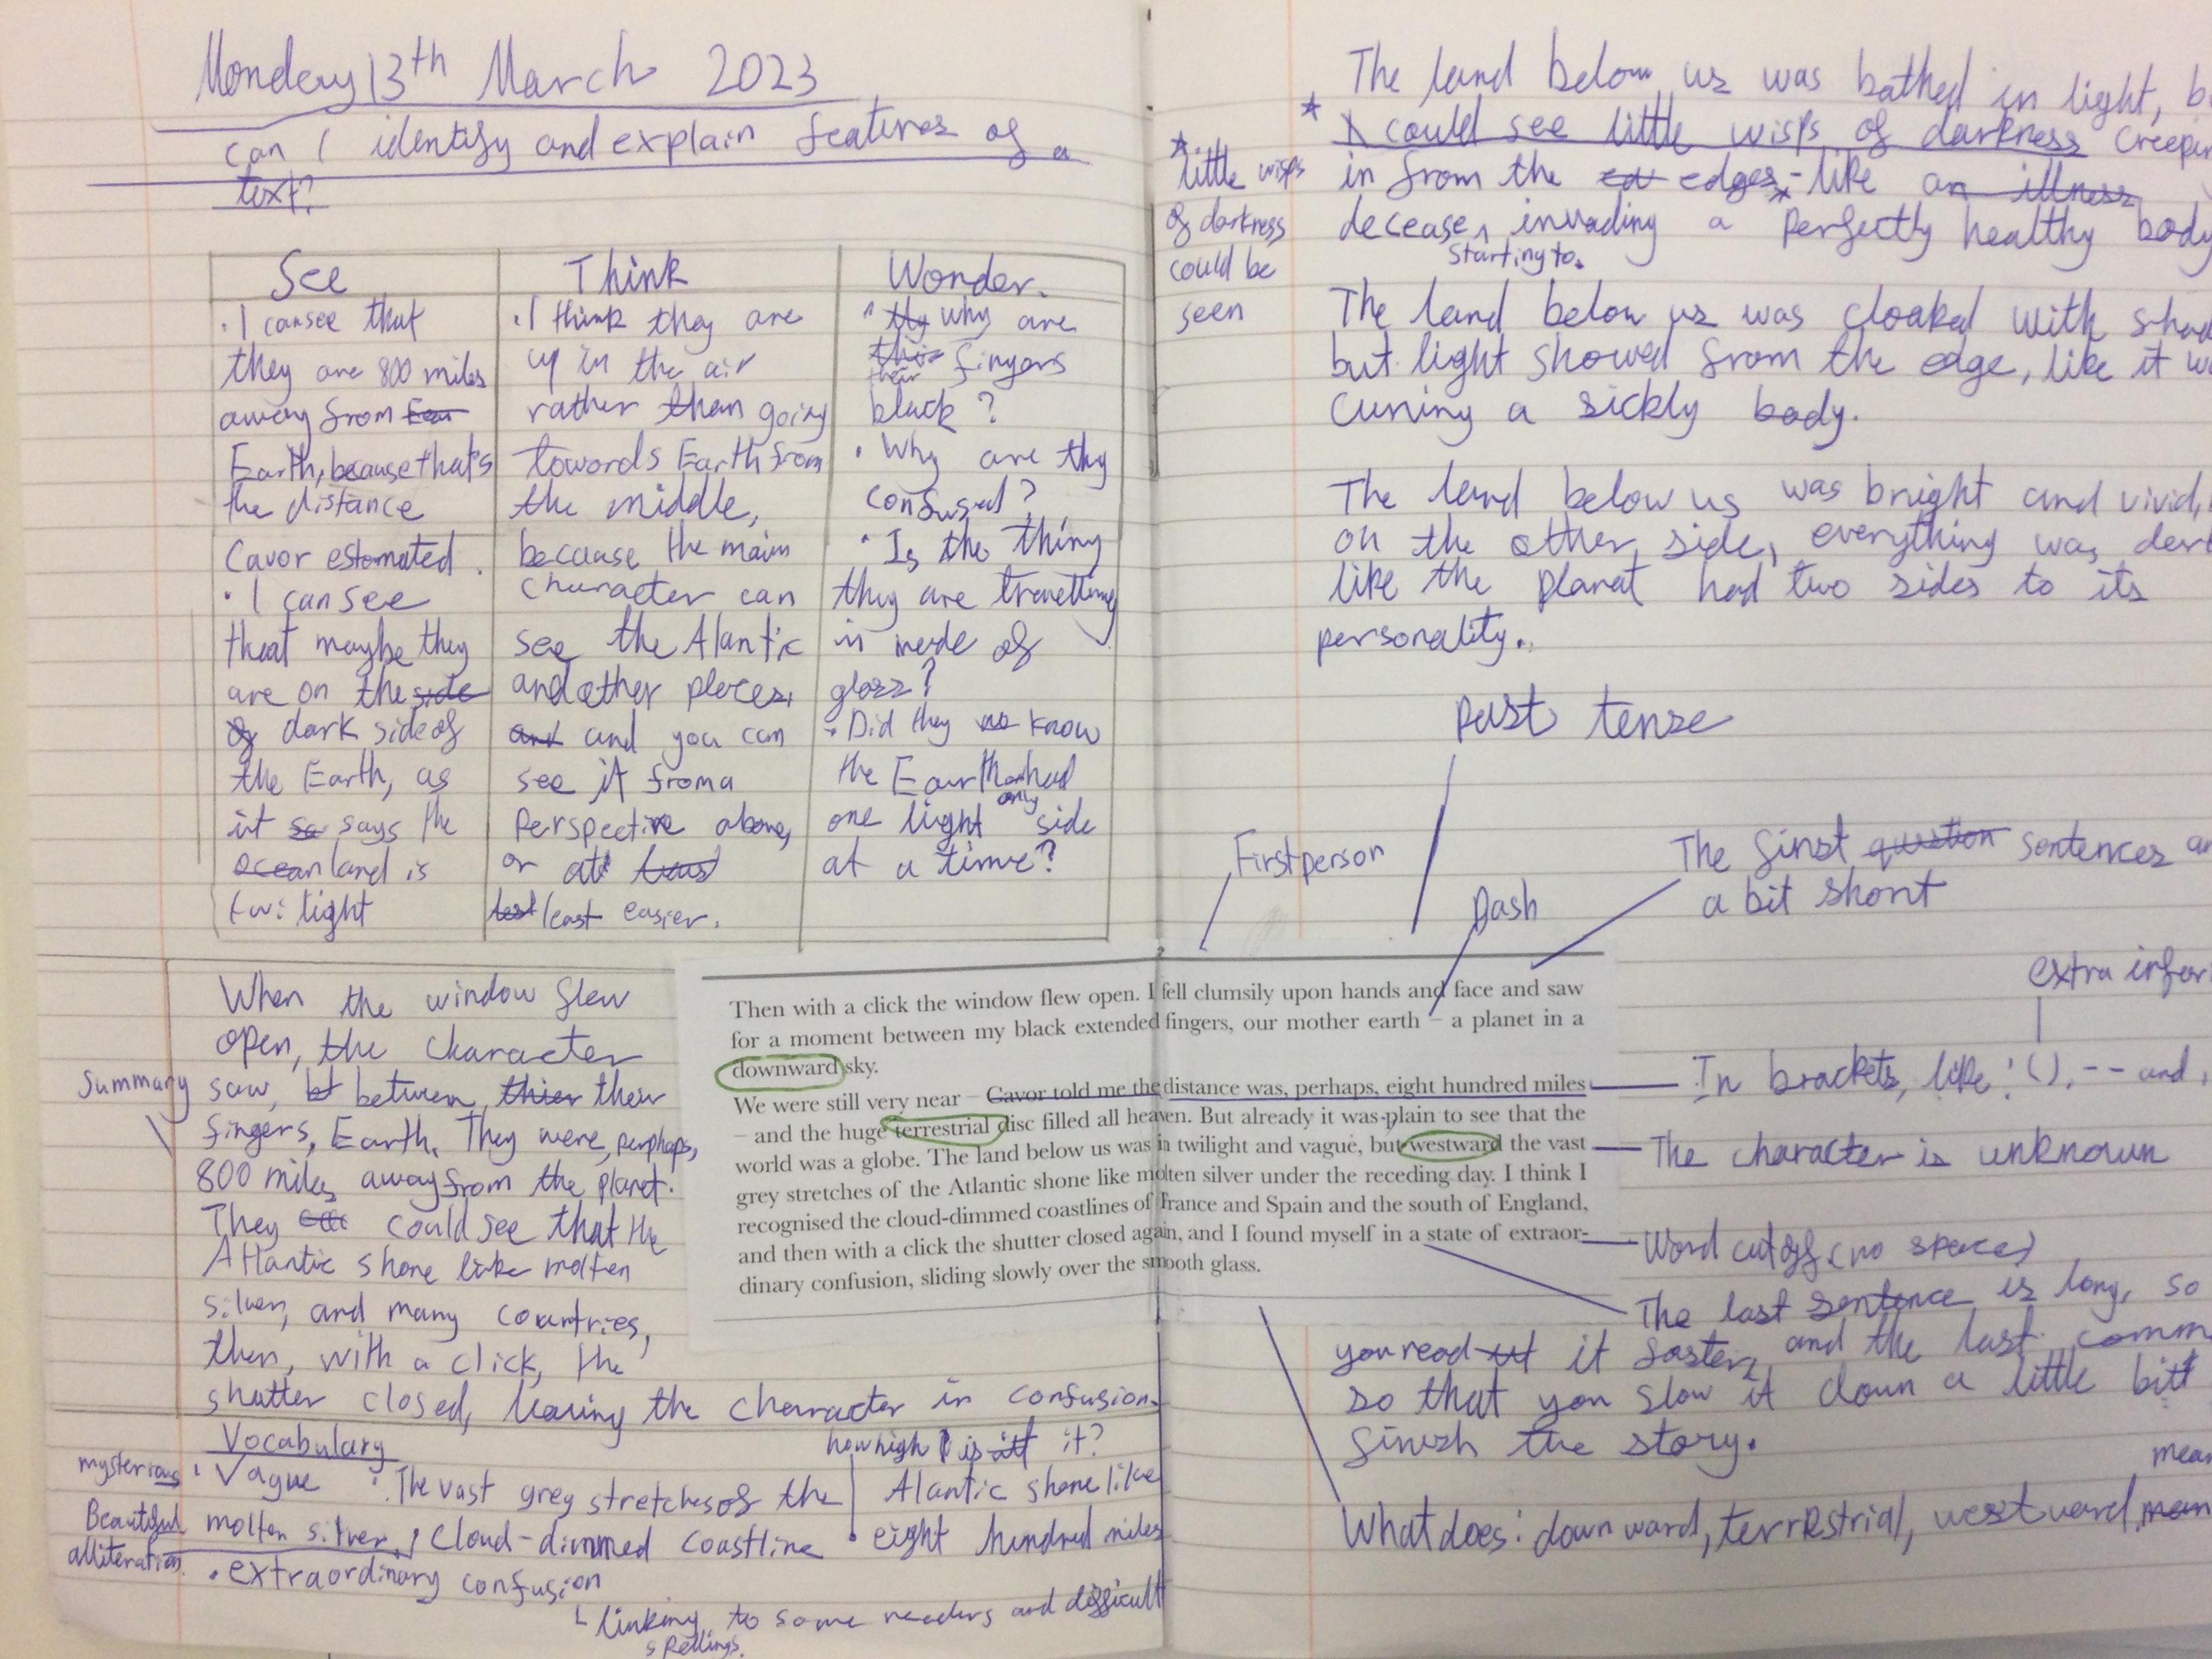 Monday 13th March 2023
can I identify and explain features of a
text?
See
. I can see that
they are 800 miles
away from
Earth, because that's
the distance
Cavor estomated.
· I can see
that maybe they
are on the side
of dark side of
the Earth, as
it so says the
ocean land is
twilight
Think
. I think they are
up in the air
rather than going
towards Earth from
the middle,
because the main
character can
see the Alantic
and other places,
and and you can
see it from a
perspective above,
or at
least easier.
Wonder.
why are
their fingers
black?
· Why are thy
confused?
· Is the thing
they are travelling
in made of
glass?
· Did they no know
the Earth had
only
one light side
at a time?
When the window flew
open, the character
Summary
saw, between their
fingers, Earth. They were, perphaps,
800 miles away from the planet.
They could see that the
Atlantic shone like molten
silver, and many countries,
then, with a click, the
shutter closed, leaving the character in confusion.
Vocabulary
how high is it?
mysterious
· Vague
· The vast grey stretches of the Alantic shone like
Beautiful
molten silver, cloud-dimmed coastline · eight hundred miles
alliteration.
· extraordinary confusion
linking to some readers and difficult
spellings.
The land below us was bathed in light,
* I could see little wisps of darkness
in from the edges - like an illness
decease, invading a perfectly healthy body
starting to.
* little wisps
of darkness
could be
seen
The land below us was cloaked with
but light showed from the edge, like it
curing a sickly body.
The land below us was bright and vivid,
on the other side, everything was
like the planet had two sides to its
personality.
past tense
First person
Dash
The first question sentences
a bit short
extra
Then with a click the window flew open. I fell clumsily upon hands and face and saw
for a moment between my black extended fingers, our mother earth – a planet in a
downward sky.
We were still very near – Cavor told me the distance was, perhaps, eight hundred miles
– and the huge terrestrial disc filled all heaven. But already it was plain to see that the
world was a globe. The land below us was in twilight and vague, but westward the vast
grey stretches of the Atlantic shone like molten silver under the receding day. I think I
recognised the cloud-dimmed coastlines of France and Spain and the south of England,
and then with a click the shutter closed again, and I found myself in a state of extraor-
dinary confusion, sliding slowly over the smooth glass.
In brackets, like: (), -- and ,
The character is unknown
Word cut off (no space)
The last sentence is long, so
you read it faster, and the last
so that you slow it down a little bit
finish the story.
What does: downward, terrestrial, westward, mean